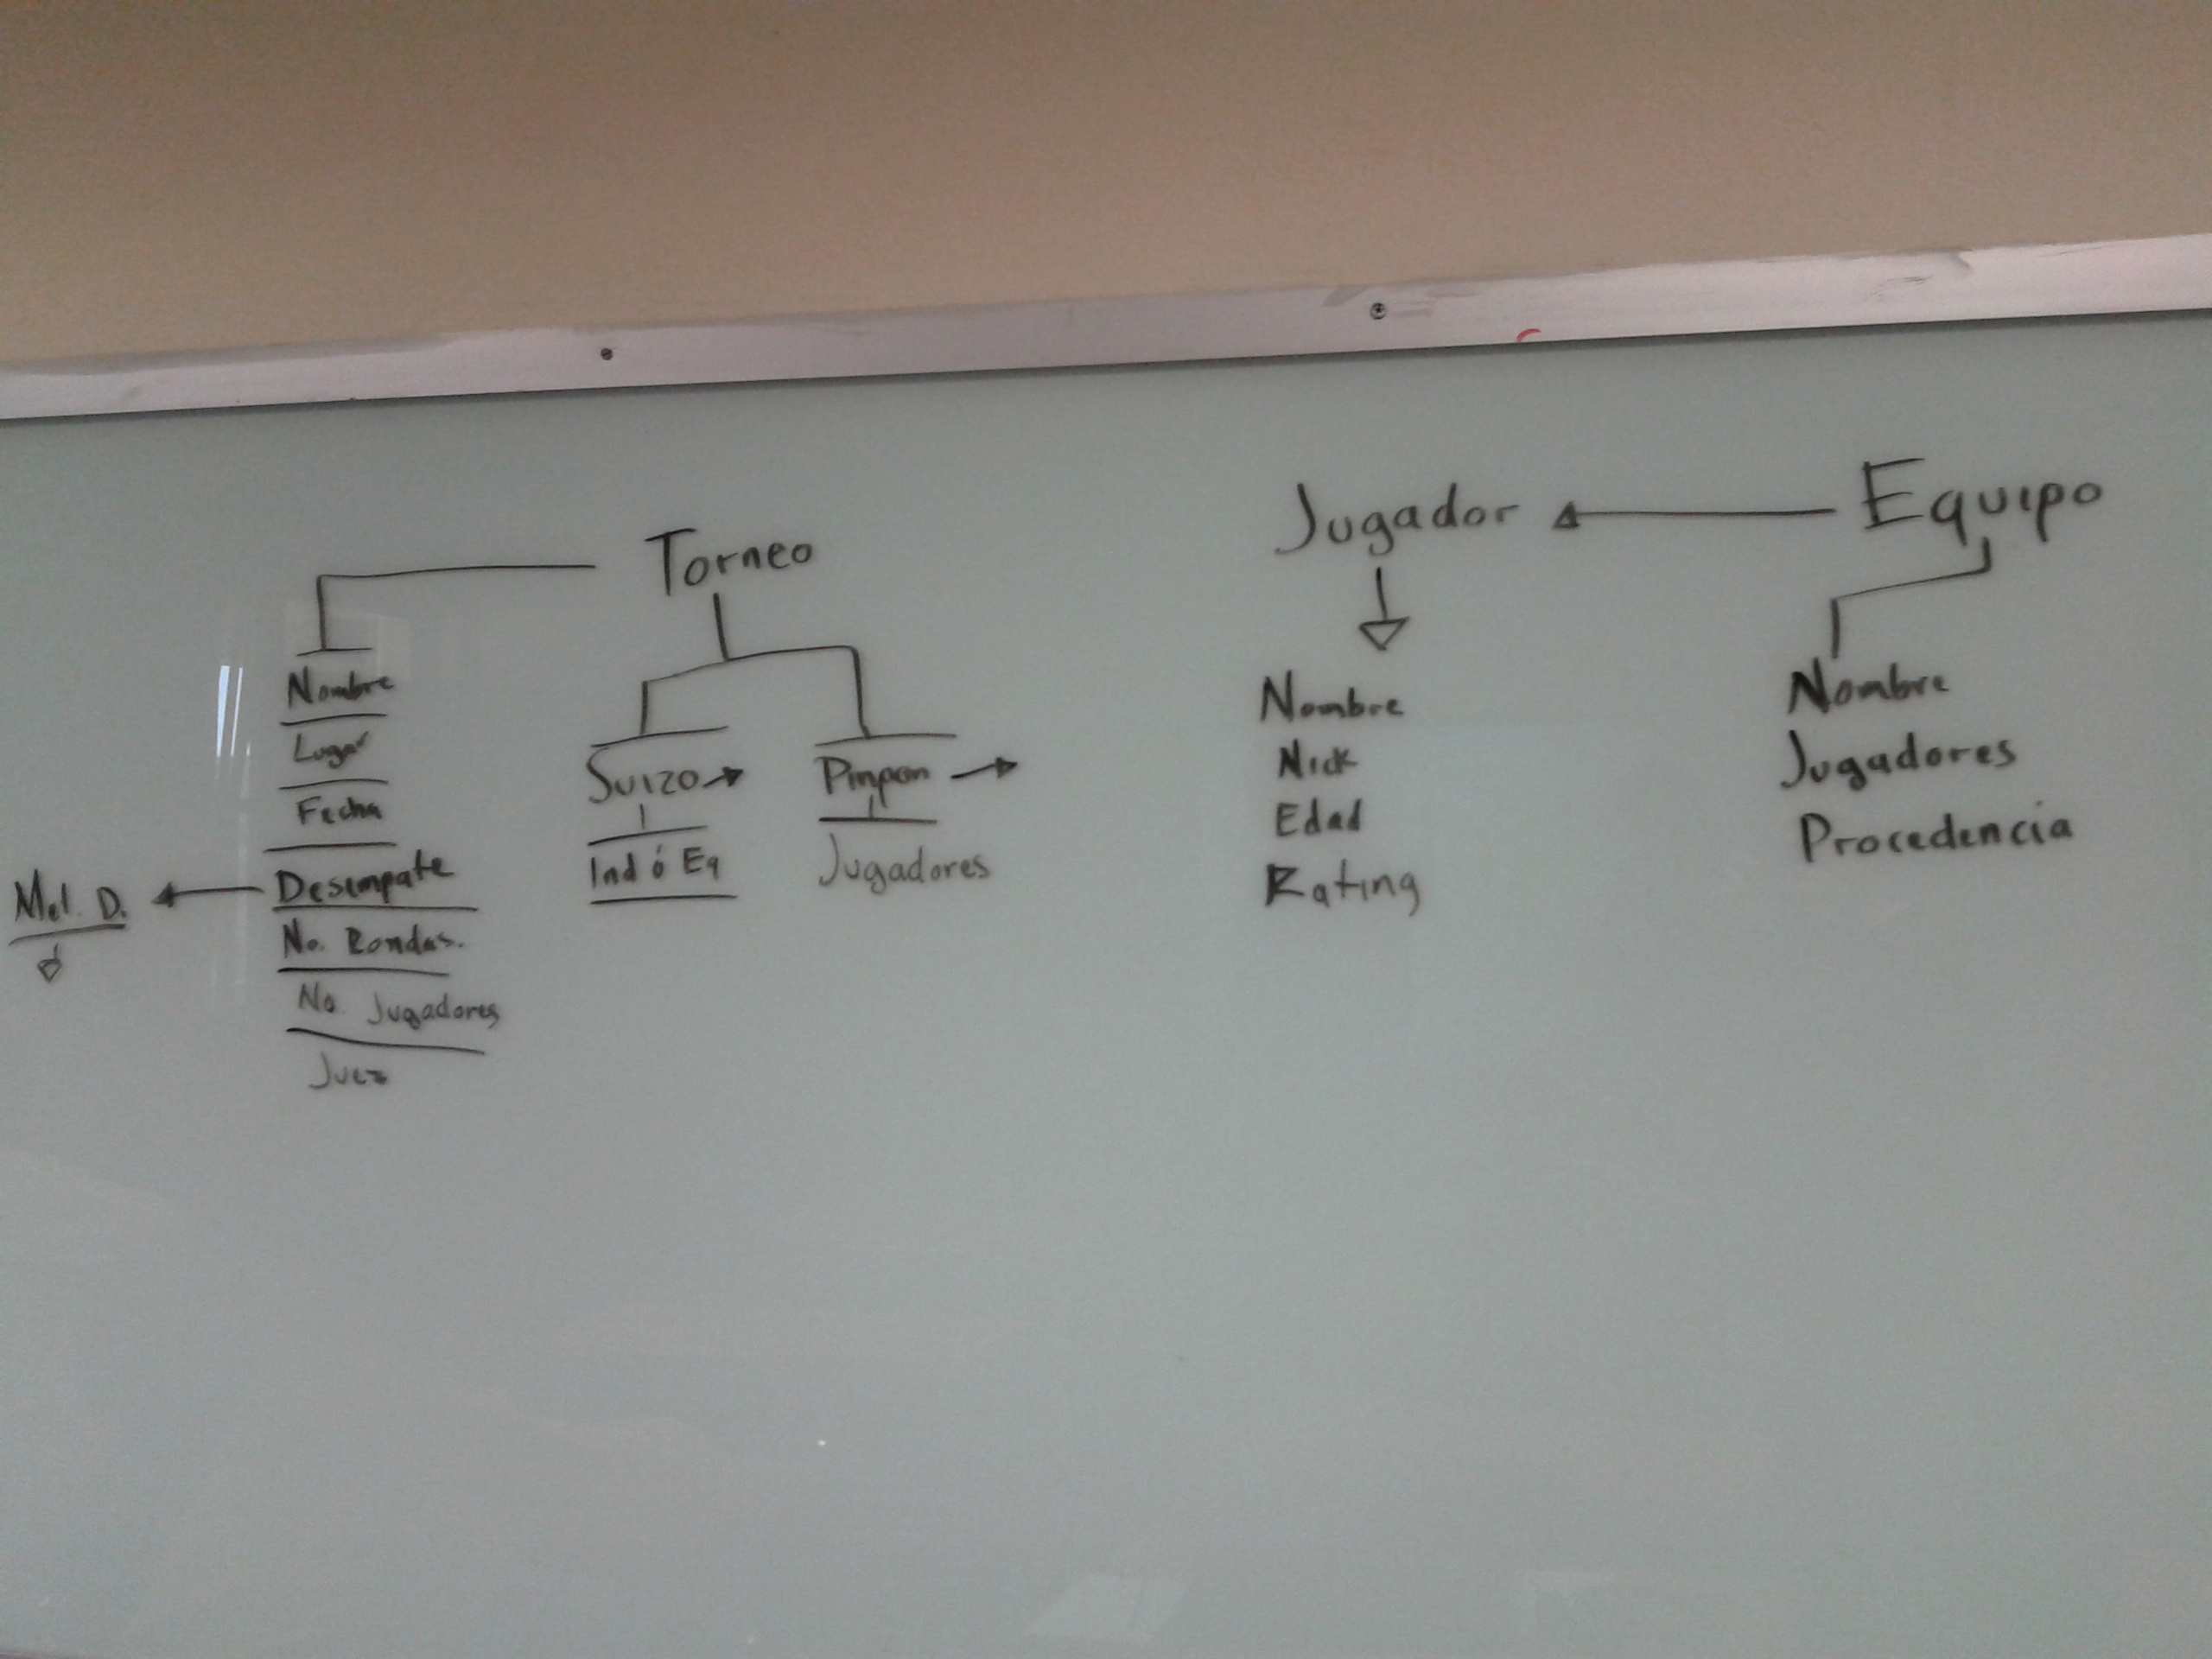 Torneo
Nombre
Lugar
Fecha
Desempate
No. Rondas.
No. Jugadores
Juez
D.
Suizo
Ind ó Eq
Pinpon
Jugadores
Jugador
Nombre
Nick
Edad
Rating
Equipo
Nombre
Jugadores
Procedencia